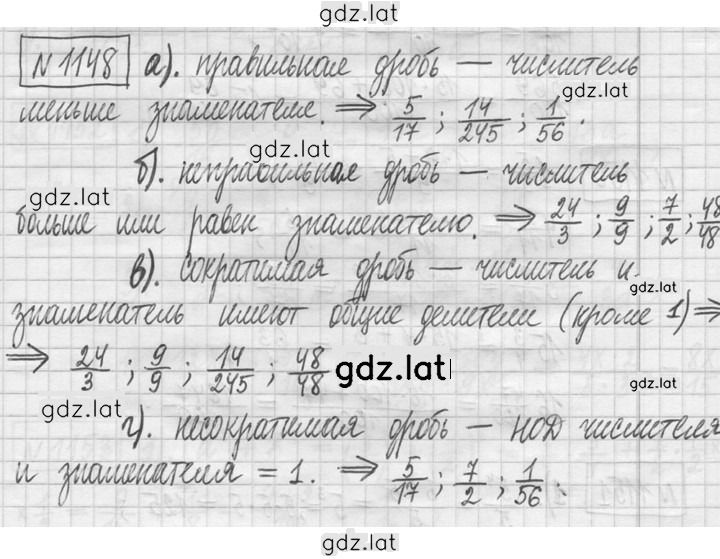 gdz.lat
№ 1148 а). правильная дробь — числитель
gdz.lat
меньше знаменателя. ⇒ 5/17 ; 14/245 ; 1/56 .
gdz.lat
б). неправильная дробь — числитель
gdz.lat
больше или равен знаменателю. ⇒ 24/3 ; 9/9 ; 7/2 ; 48/48
в). сократимая дробь — числитель и
gdz.lat
знаменатель имеют общие делители (кроме 1) ⇒
⇒ 24/3 ; 9/9 ; 14/245 ; 48/48
gdz.lat
gdz.lat
gdz.lat
г). несократимая дробь — НОД числителя
и знаменателя = 1. ⇒ 5/17 ; 7/2 ; 1/56 .
gdz.lat
gdz.lat